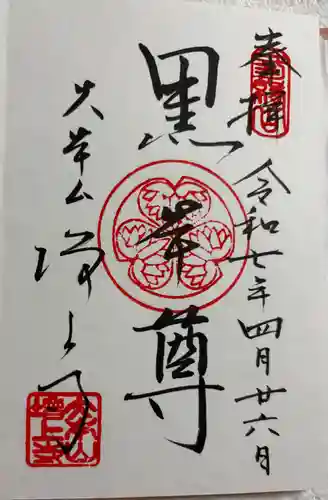 奉拝
令和七年四月廿六日
黒本尊
大本山
増上寺